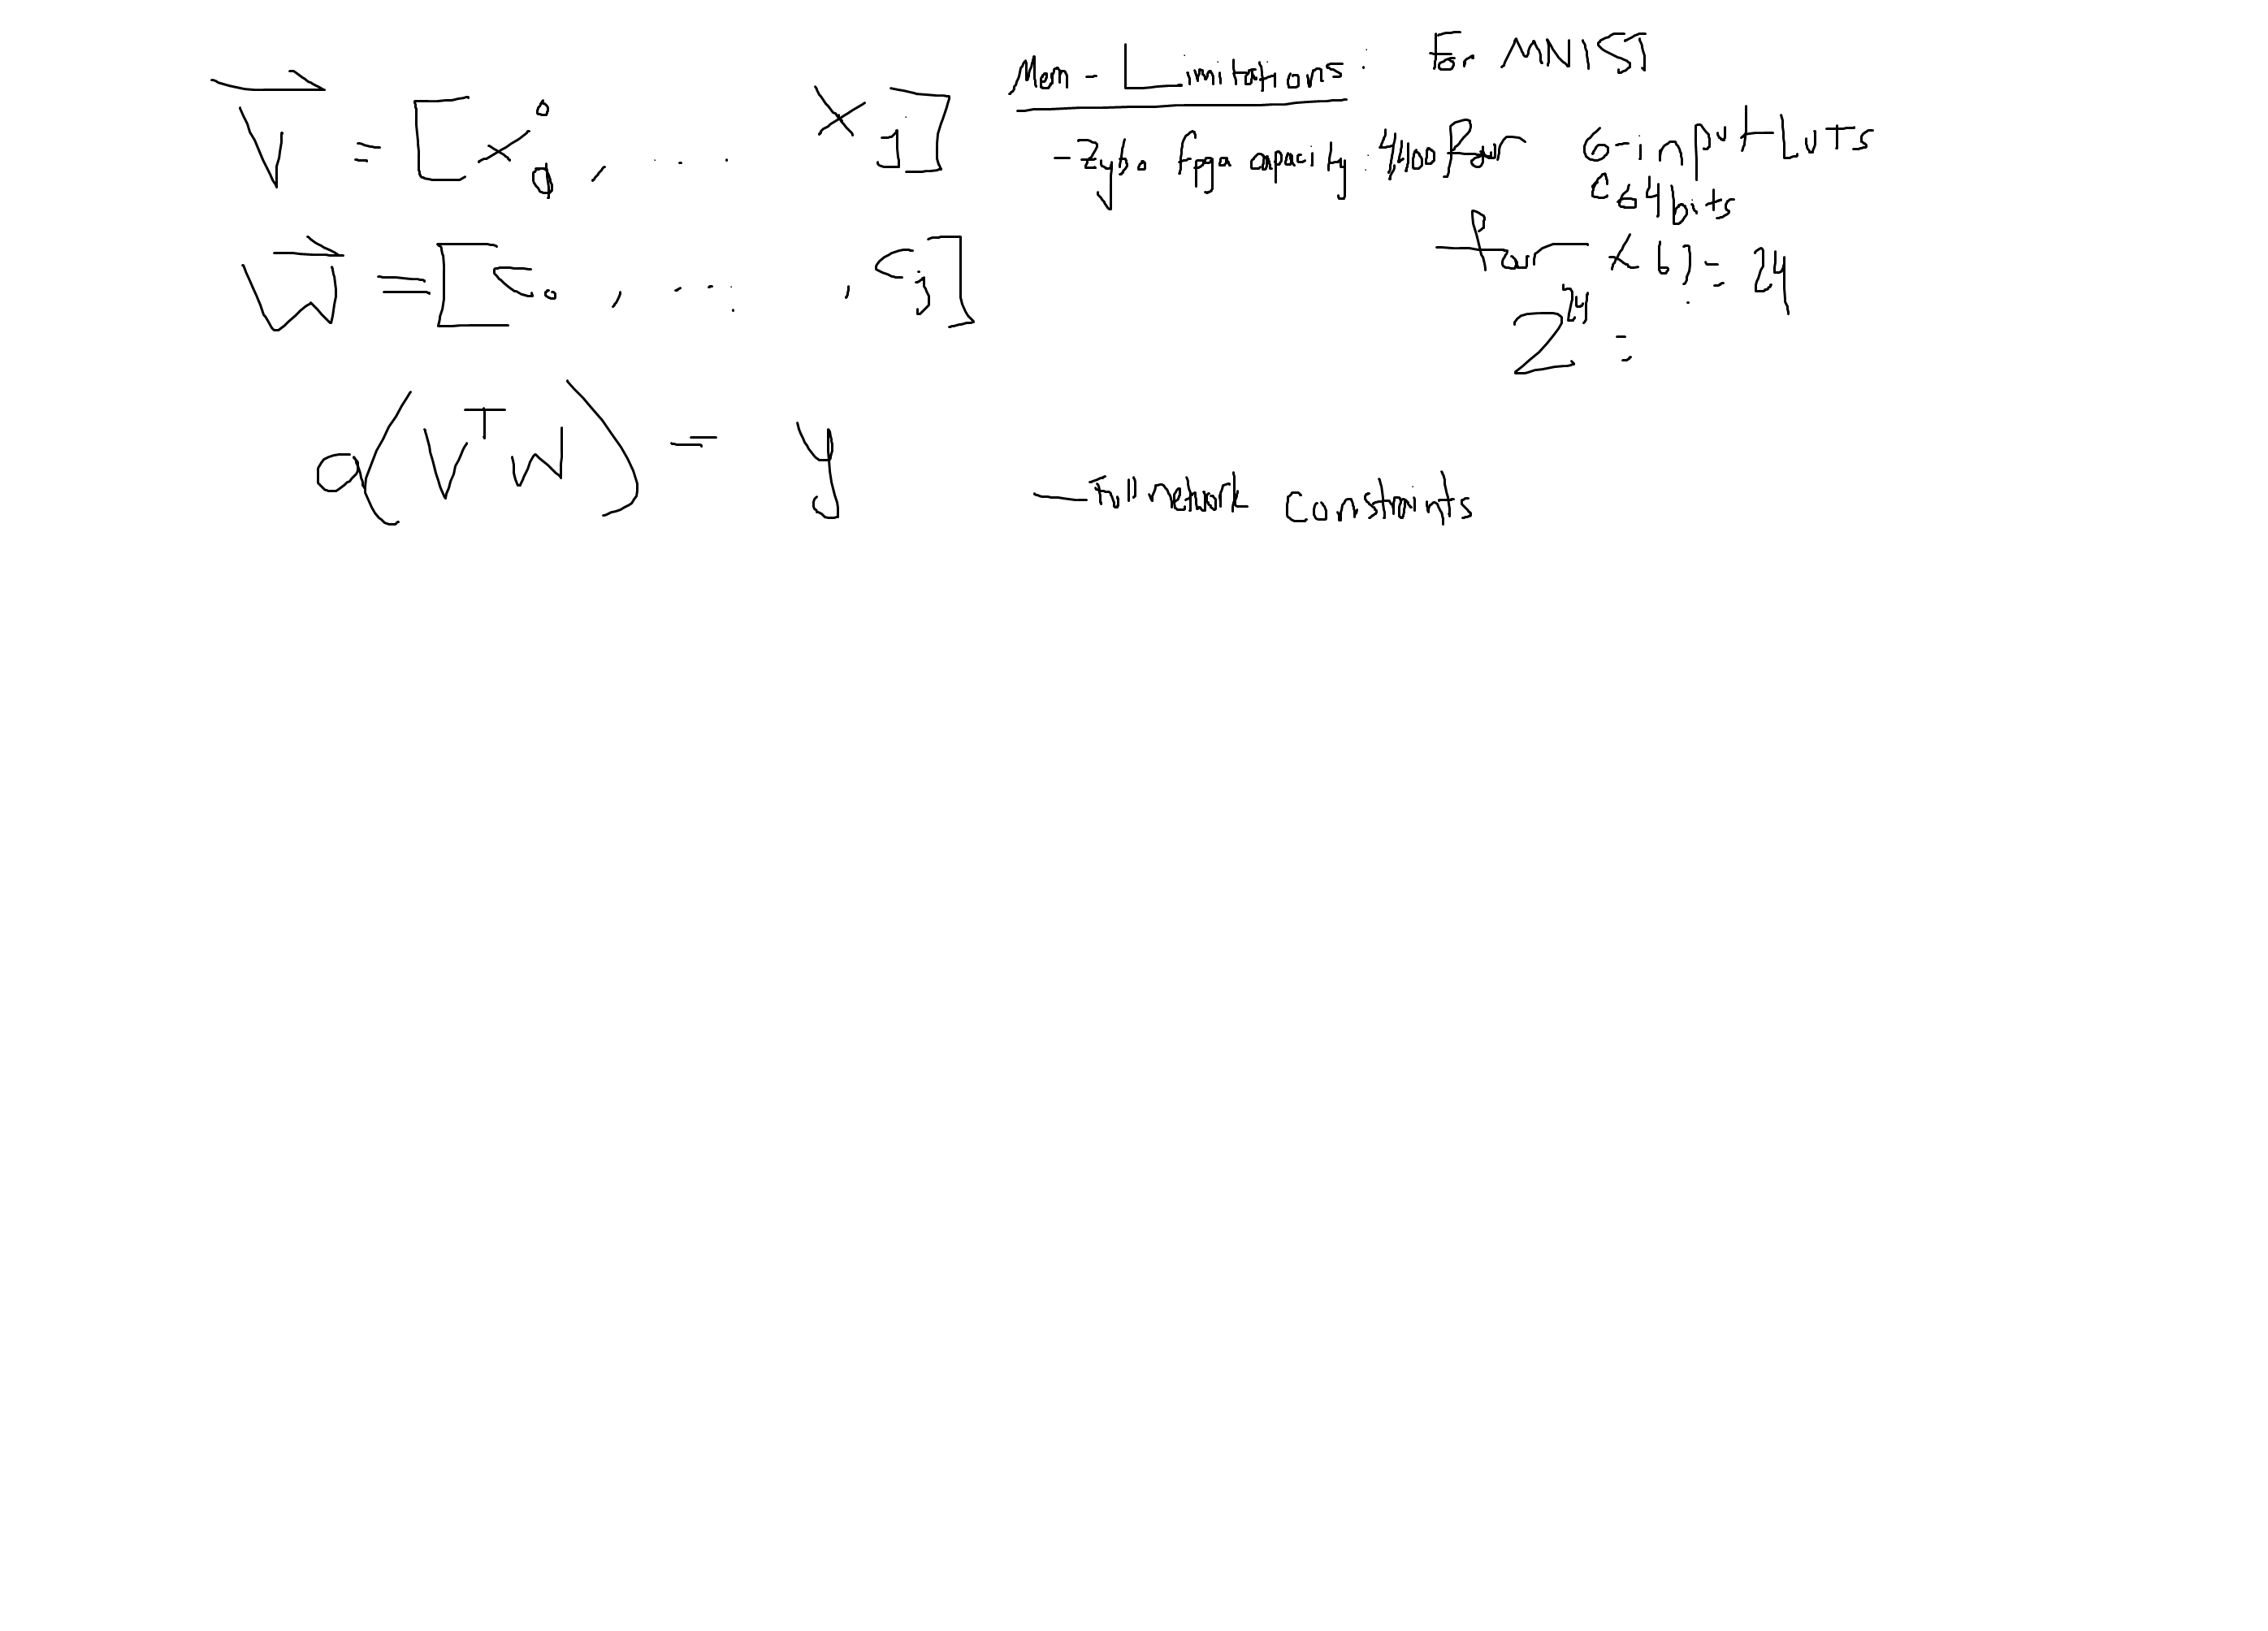 V = [x₀, ... x_j]
W = [c₀, ..., c_j]
σ(VᵀW) = y
Mem-Limitations: For MNIST
- Zybo fpga capacity: 4,400 6-input LUTs
64 bits
four x 6 = 24
2²⁴ =
- Full network constraints